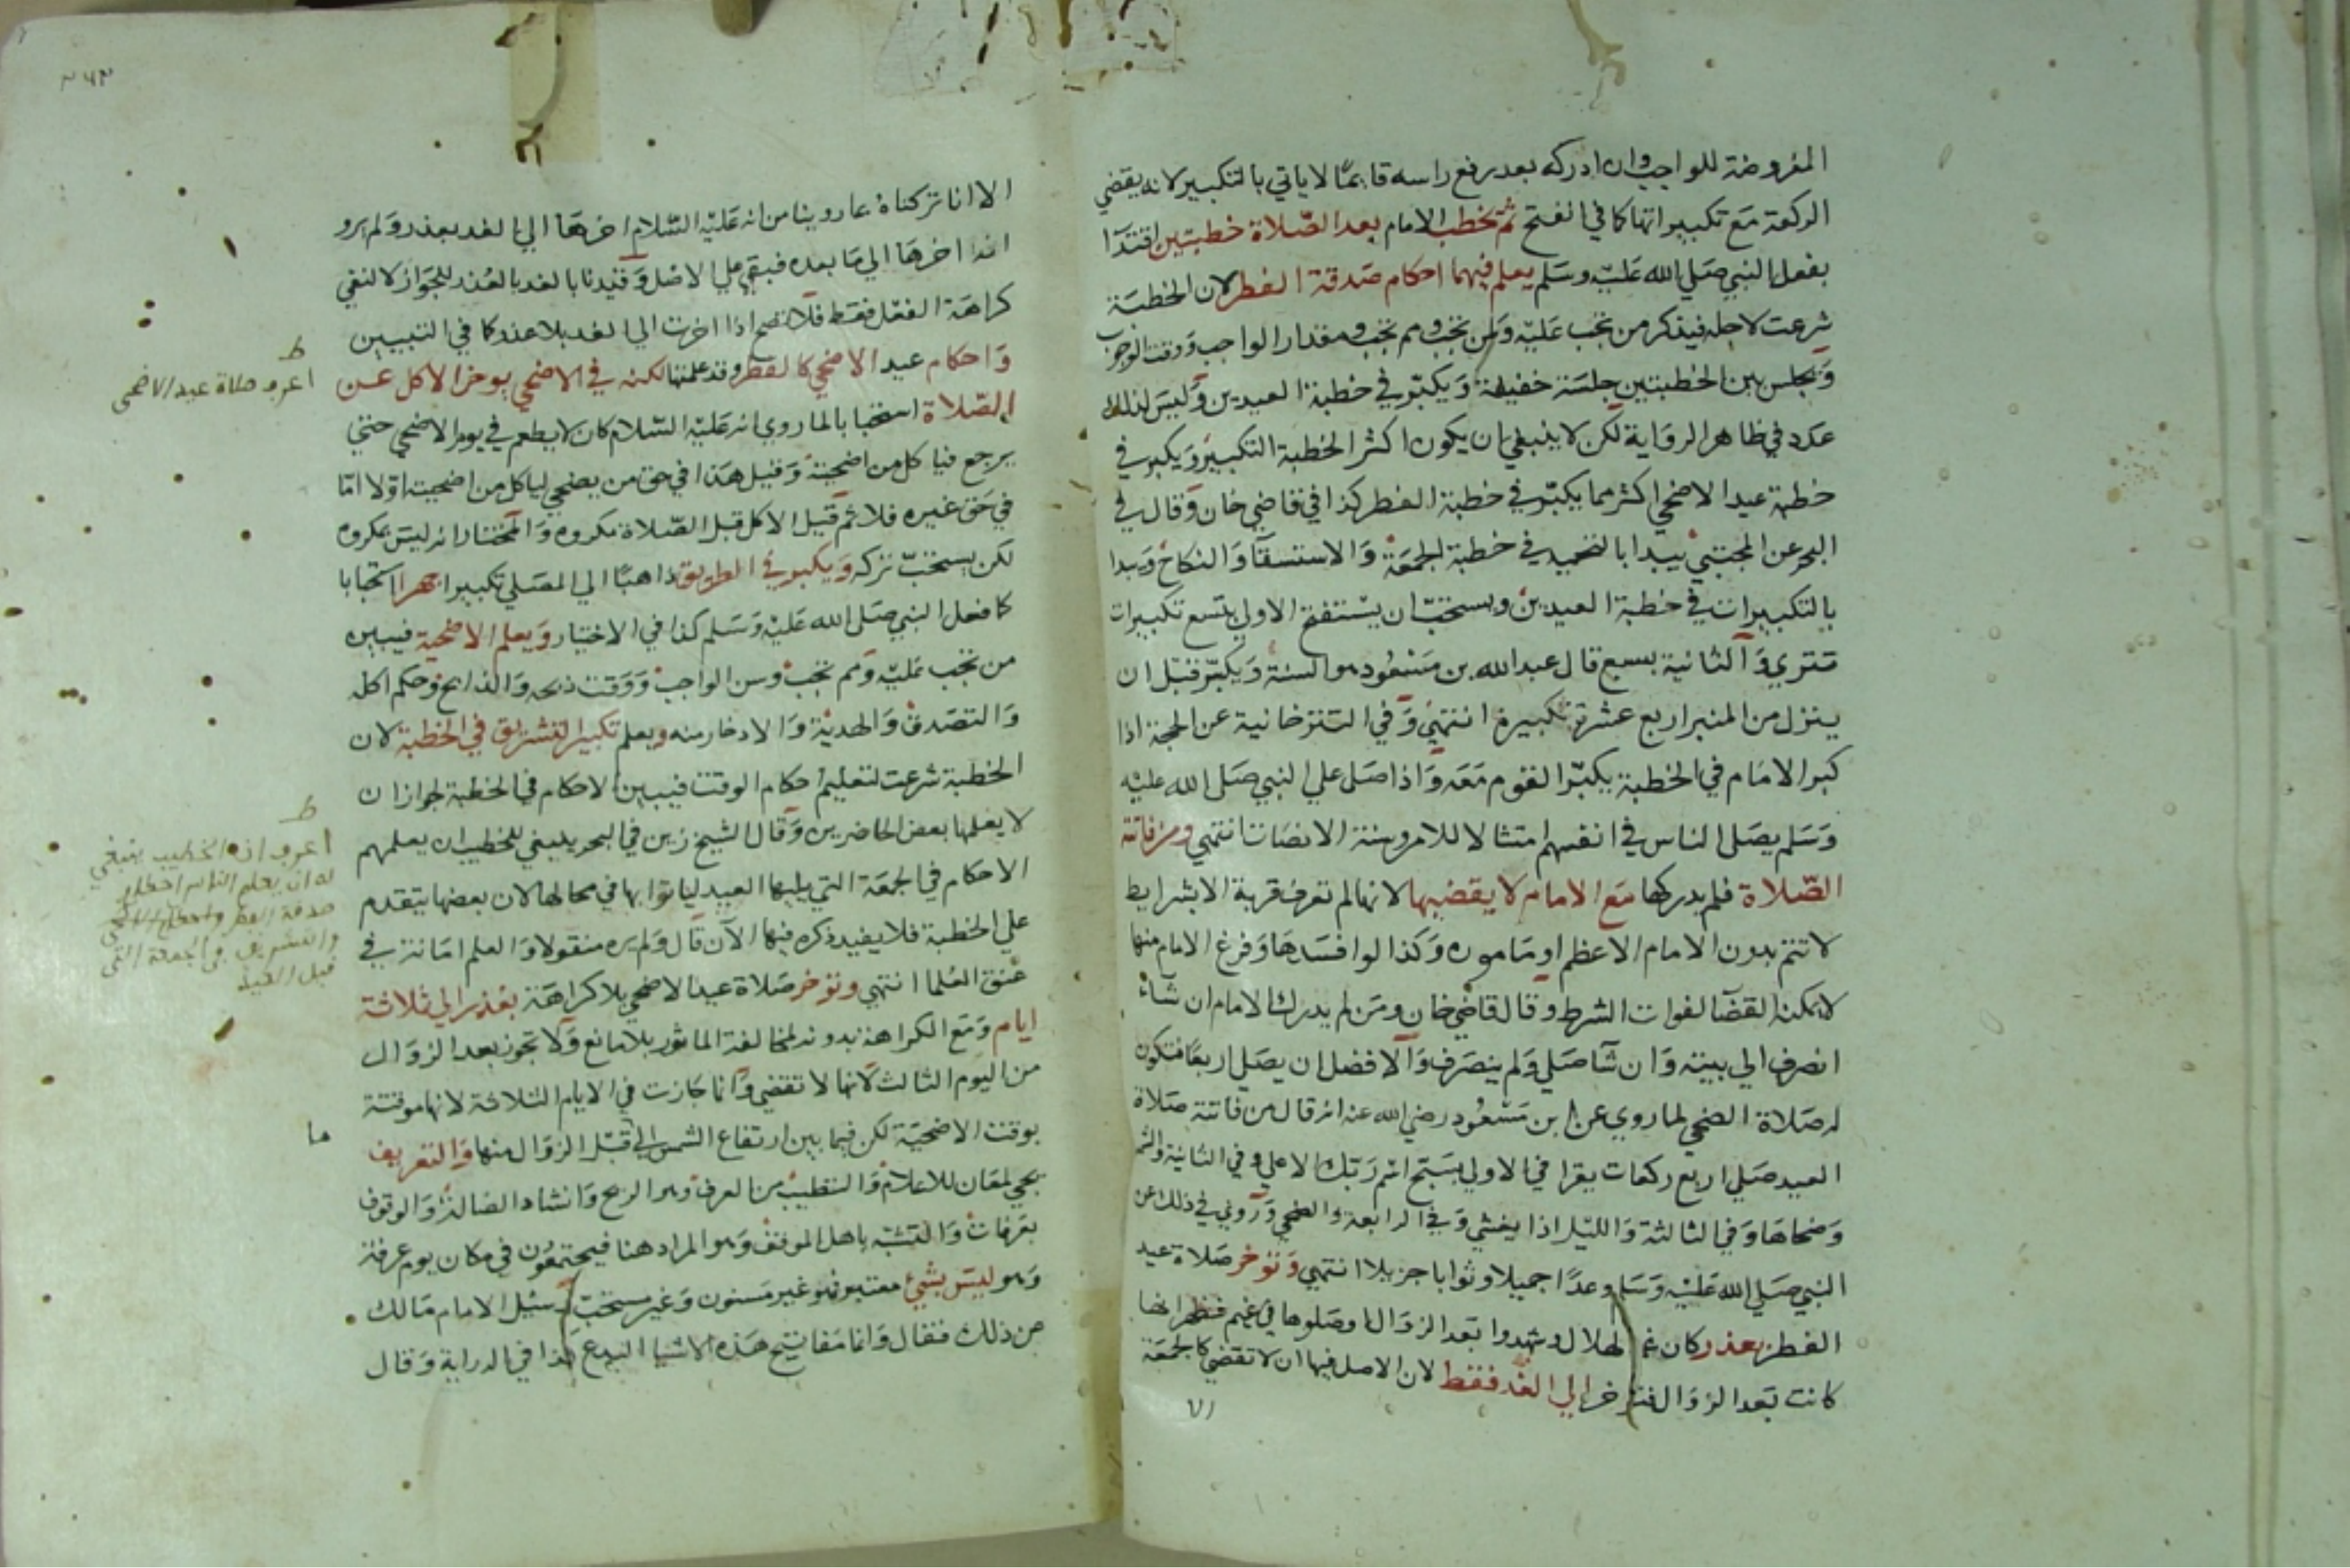 المفروضة للواجب وان ادركه بعد رفع راسه قايما لا ياتي بالتكبير لانه يقضي
الركعة مع تكبيراتها كما في الفتح ثم يخطب الامام بعد الصلاة خطبتين اقتدآ
بفعل النبي صلي الله عليه وسلم يعلم فيهما احكام صدقة الفطر لان الخطبة
شرعت لاجله فيذكر من تجب عليه ولمن تجب ومم تجب ومقدار الواجب ووقت الوجوب
ويجلس بين الخطبتين جلسة خفيفة ويكبر في خطبة العيدين وليس لذلك
عدد في ظاهر الرواية لكن لا ينبغي ان يكون اكثر الخطبة التكبير ويكبر في
خطبة عيد الاضحي اكثر مما يكبر في خطبة الفطر كذا في قاضي خان وقال في
البحر عن المجتبي يبدا بالتحميد في خطبة الجمعة والاستسقآ والنكاح ويبدا
بالتكبيرات في خطبة العيدين ويستحب ان يستفتح الاولي بتسع تكبيرات
تتري والثانية بسبع قال عبد الله بن مسعود هو السنة ويكبر قبل ان
ينزل من المنبر اربع عشرة تكبيرة انتهي وفي التترخانية عن الحجة اذا
كبر الامام في الخطبة يكبر القوم معه واذا صلي علي النبي صلي الله عليه
وسلم يصلي الناس في انفسهم امتثالا للامر وسنة الانصات انتهي ومن فاتته
الصلاة فلم يدركها مع الامام لا يقضيها لانها لم تعرف قربة الا بشرايط
لا تتم بدون الامام الاعظم او ماموره وكذا لو افسدها وفرغ الامام منها
لا يمكنه القضآ لفوات الشرط وقال قاضي خان ومن لم يدرك الامام ان شآء
انصرف الي بيته وان شآ صلي ولم ينصرف والافضل ان يصلي اربعا فتكون
له صلاة الضحي لما روي عن ابن مسعود رضي الله عنه انه قال من فاتته صلاة
العيد صلي اربع ركعات يقرا في الاولي بسبح اسم ربك الاعلي وفي الثانية والشمس
وضحاها وفي الثالثة والليل اذا يغشي وفي الرابعة والضحي وروي في ذلك عن
النبي صلي الله عليه وسلم وعدا جميلا وثوابا جزيلا انتهي وتوخر صلاة عيد
الفطر بعذر كان غم الهلال وشهدوا بعد الزوال او صلوها في غيم فظهر انها
كانت بعد الزوال فتوخر الي الغد فقط لان الاصل فيها ان لا تقضي كالجمعة
الا
الا انا تركناه بما روينا من انه عليه السلام اخرها الي الغد بعذر ولم يرو
انه اخرها الي ما بعده فبقي علي الاصل وقيدنا بالغد بالعذر للجواز لا لنفي
كراهة الفعل فقط فلا تصح اذا اخرت الي الغد بلا عذر كما في التبيين
واحكام عيد الاضحي كالفطر وقد علمتها لكنه في الاضحي يوخر الاكل عن
الصلاة استحبابا لما روي انه عليه السلام كان لا يطعم في يوم الاضحي حتي
يرجع فياكل من اضحيته وقيل هذا في حق من يضحي لياكل من اضحيته اولا اما
في حق غيره فلا ثم قيل الاكل قبل الصلاة مكروه والمختار انه ليس بمكروه
لكن يستحب تركه ويكبر في الطريق ذاهبا الي المصلي تكبيرا جهرا استحبابا
كما فعل النبي صلي الله عليه وسلم كذا في الاختيار ويعلم الاضحية فيبين
من تجب عليه ومم تجب وسن الواجب ووقت ذبحه والذابح وحكم اكله
والتصدق والهدية والادخار منه ويعلم تكبير التشريق في الخطبة لان
الخطبة شرعت لتعليم احكام الوقت فيبين الاحكام في الخطبة لجواز ان
لا يعلمها بعض الحاضرين وقال الشيخ زين في البحر ينبغي للخطيب ان يعلمهم
الاحكام في الجمعة التي يليها العيد لياتوا بها في محالها لان بعضها يتقدم
علي الخطبة فلا يفيد ذكره فيها الآن قال ولم يره منقولا والعلم امانة في
عنق العلما انتهي وتوخر صلاة عيد الاضحي بلا كراهة بعذر الي ثلاثة
ايام ومع الكراهة بدونه لمخالفة الماثور بلا مانع ولا تجوز بعد الزوال
من اليوم الثالث لانها لا تقضي وانما جازت في الايام الثلاثة لانها موقتة
بوقت الاضحية لكن فيما بين ارتفاع الشمس الي قبل الزوال منها والتعريف
يجي لمعان للاعلام والتطييب من العرف وهو الريح وانشاد الضالة والوقوف
بعرفات والتشبه باهل الموقف وهو المراد هنا فيجتمعون في مكان يوم عرفة
وهو ليس بشيء معتبر فهو غير مسنون وغير مستحب سئل الامام مالك
عن ذلك فقال وانما مفاتيح هذه الاشيا البدع كذا في الدراية وقال
ط
اعرف صلاة عيد الاضحى
ط
اعرف ان الخطيب ينبغي
له ان يعلم الناس احكام
صدقة الفطر واحكام الاضحى
والتشريق في الجمعة التي
قبل العيد
ما